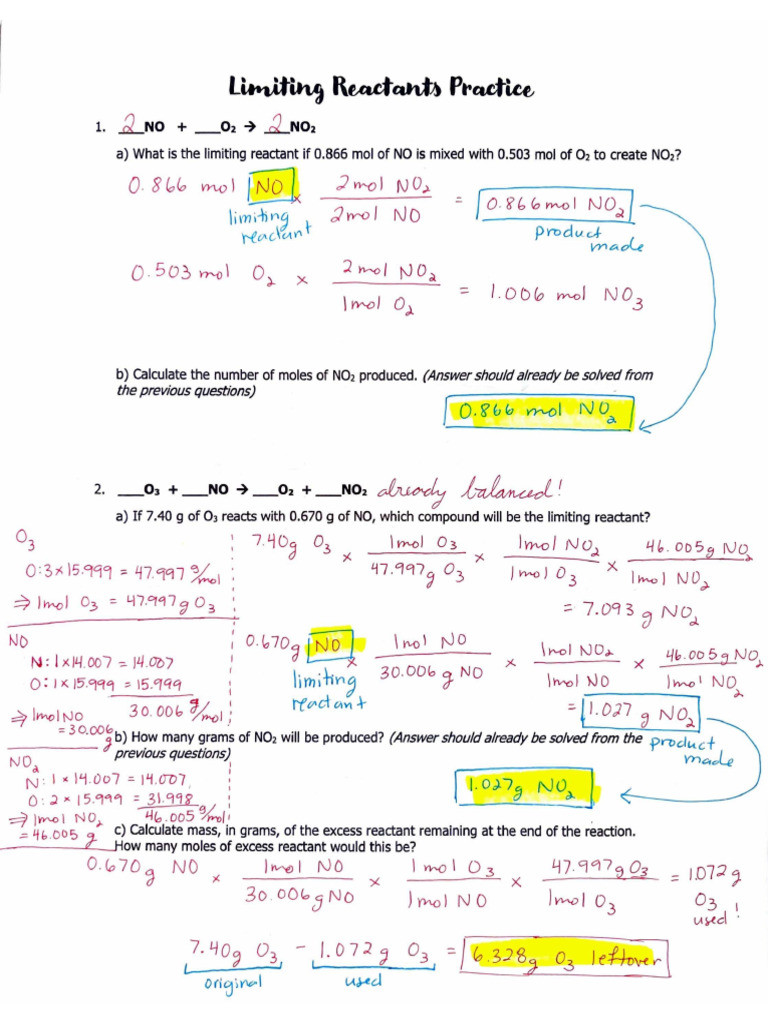 Limiting Reactants Practice
1. 2 NO + ___O₂ → 2 NO₂
a) What is the limiting reactant if 0.866 mol of NO is mixed with 0.503 mol of O₂ to create NO₂?
0.866 mol NO × 2mol NO₂ / 2mol NO = 0.866mol NO₂
limiting reactant
product made
0.503 mol O₂ × 2mol NO₂ / 1mol O₂ = 1.006 mol NO₃
b) Calculate the number of moles of NO₂ produced. (Answer should already be solved from
the previous questions)
0.866 mol NO₂
2. ___O₃ + ___NO → ___O₂ + ___NO₂ already balanced!
a) If 7.40 g of O₃ reacts with 0.670 g of NO, which compound will be the limiting reactant?
O₃
O: 3×15.999 = 47.997 g/mol
⇒ 1mol O₃ = 47.997g O₃
7.40g O₃ × 1mol O₃ / 47.997g O₃ × 1mol NO₂ / 1mol O₃ × 46.005g NO₂ / 1mol NO₂
= 7.093 g NO₂
NO
N: 1×14.007 = 14.007
O: 1×15.999 = 15.999
30.006 g/mol
⇒ 1mol NO
= 30.006 g
0.670g NO × 1mol NO / 30.006 g NO × 1mol NO₂ / 1mol NO × 46.005g NO₂ / 1mol NO₂
limiting reactant
= 1.027 g NO₂
product made
b) How many grams of NO₂ will be produced? (Answer should already be solved from the
previous questions)
1.027g NO₂
NO₂
N: 1 × 14.007 = 14.007
O: 2 × 15.999 = 31.998
46.005 g/mol
⇒ 1mol NO₂
= 46.005 g
c) Calculate mass, in grams, of the excess reactant remaining at the end of the reaction.
How many moles of excess reactant would this be?
0.670g NO × 1mol NO / 30.006gNO × 1mol O₃ / 1mol NO × 47.997gO₃ / 1mol O₃ = 1.072 g
O₃
used!
7.40g O₃ − 1.072g O₃ = 6.328g O₃ leftover
original used